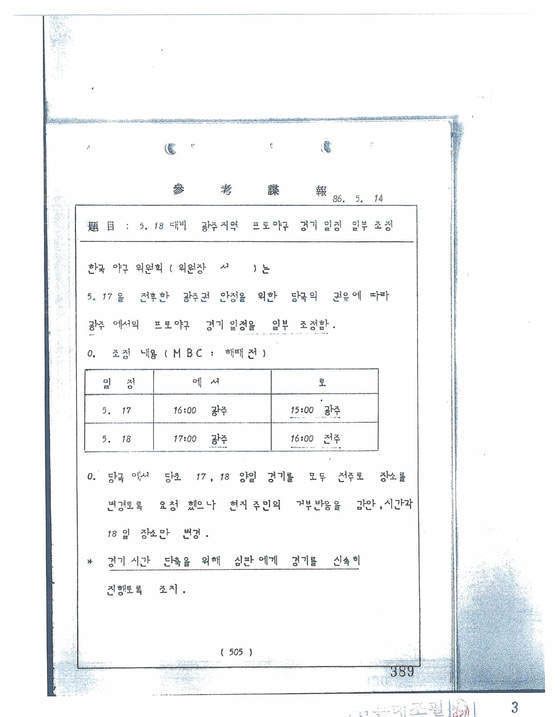 參 考 諜 報
86. 5. 14
題 目 : 5. 18 대비 광주지역 프로야구 경기 일정 일부 조정
한국 야구 위원회 ( 위원장 서 ) 는
5. 17 을 전후한 광주권 안정을 위한 당국의 권유에 따라
광주 에서의 프로야구 경기일정을 일부 조정함 .
0. 조정 내용 ( M B C : 해태 전 )
일 정 에 서 로
5. 17 16:00 광주 15:00 광주
5. 18 17:00 광주 16:00 전주
0. 당국 에서 당초 17 , 18 양일 경기를 모두 전주로 장소를
변경토록 요청 했으나 현지 주민의 거부반응을 감안 , 시간과
18 일 장소만 변경 .
* 경기 시간 단축을 위해 심판 에게 경기를 신속히
진행토록 조치 .
( 505 )
389
3